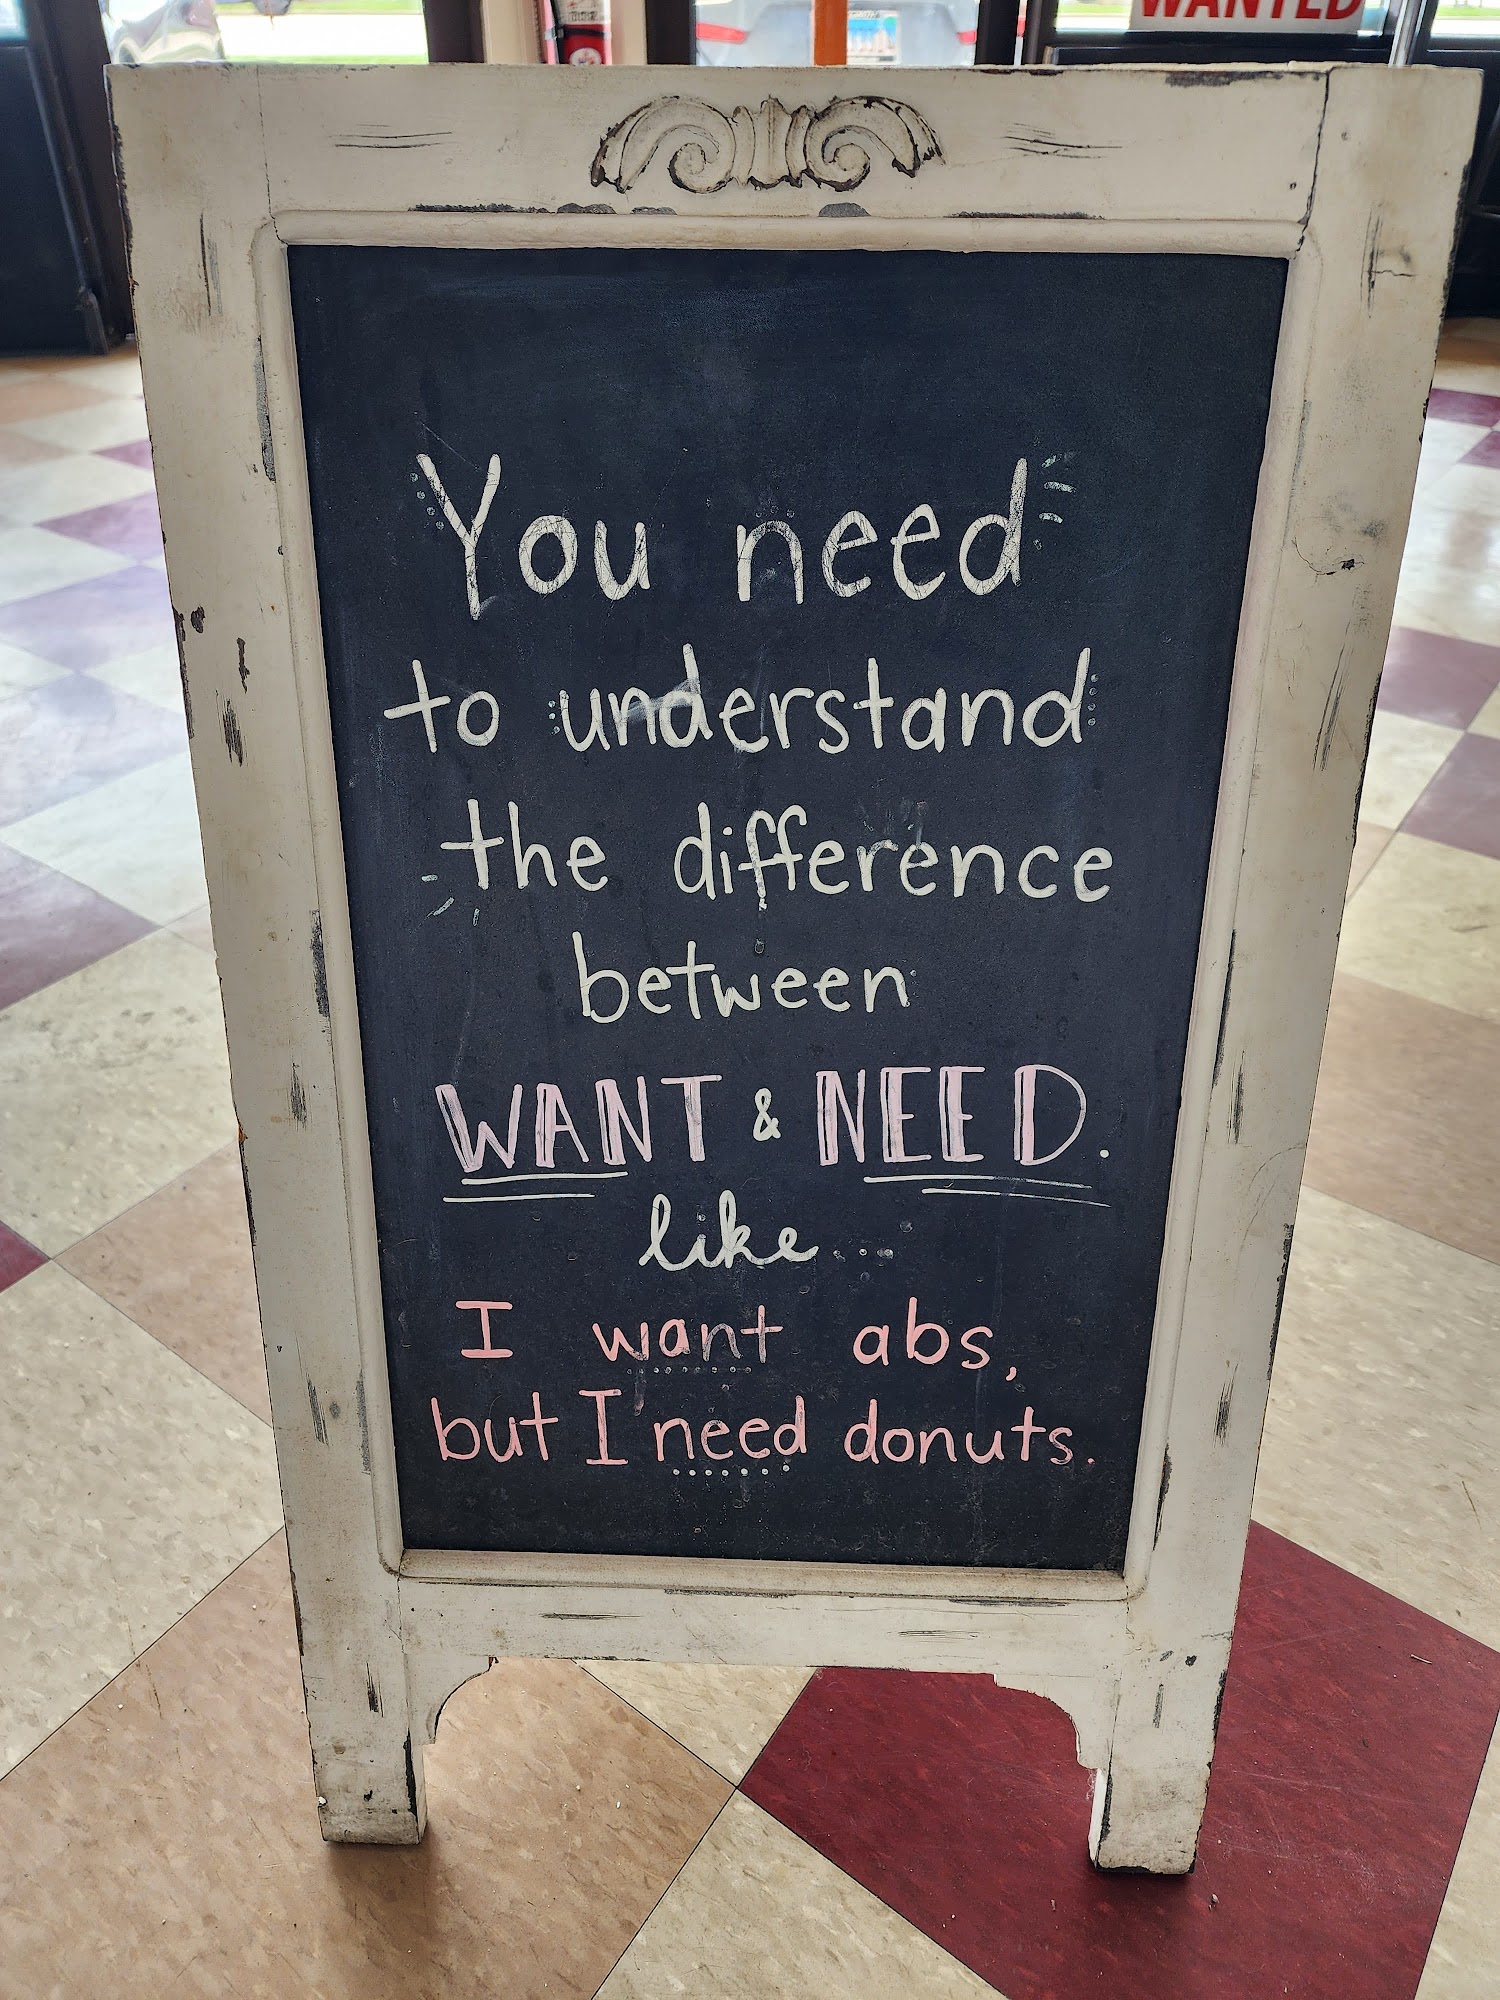 WANTED
You need
to understand
the difference
between
WANT & NEED.
like...
I want abs,
but I need donuts.